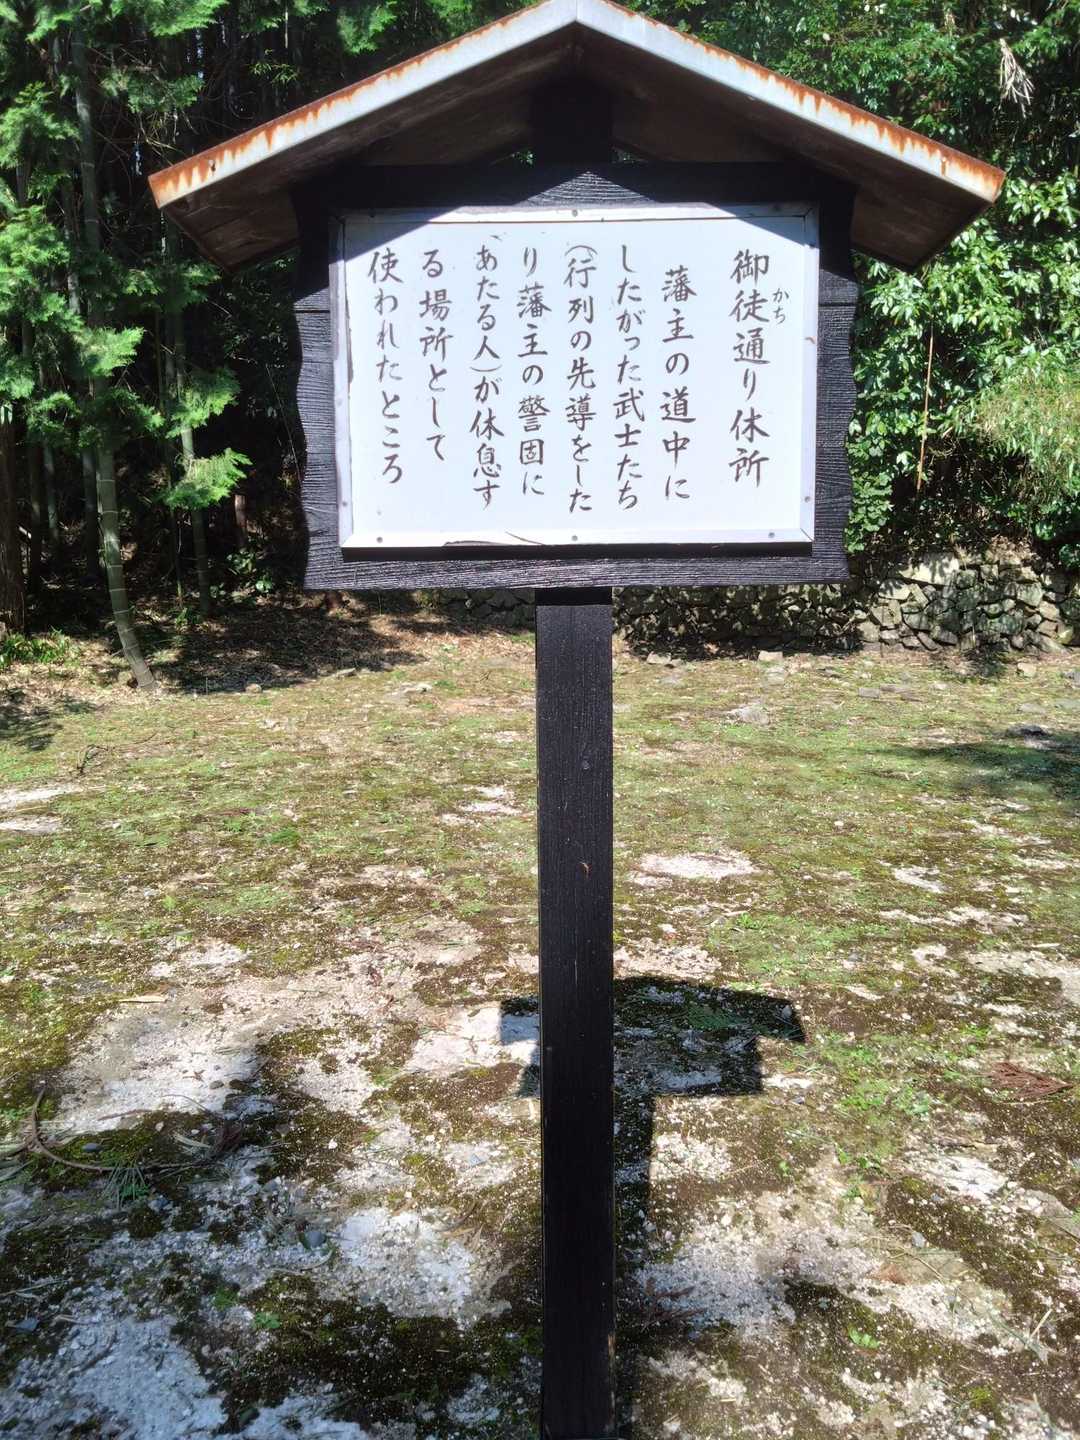 御徒通り休所
かち
藩主の道中に
したがった武士たち
(行列の先導をした
り藩主の警固に
あたる人)が休息す
る場所として
使われたところ